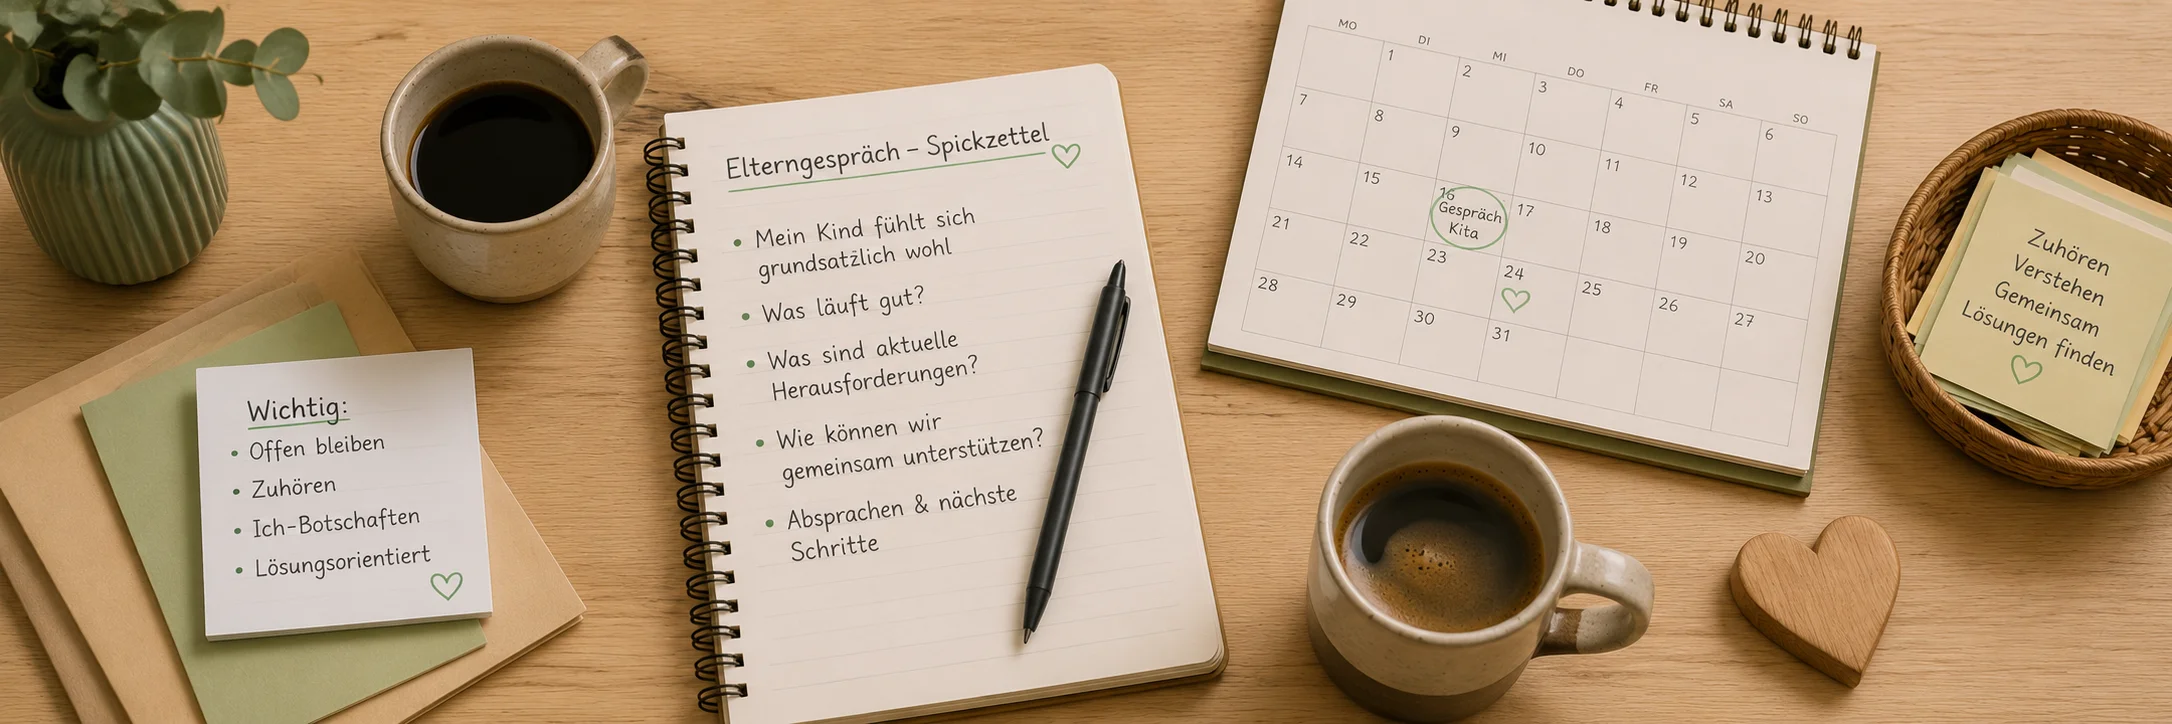 Elterngespräch – Spickzettel
• Mein Kind fühlt sich
grundsatzlich wohl
• Was läuft gut?
• Was sind aktuelle
Herausforderungen?
• Wie können wir
gemeinsam unterstützen?
• Absprachen & nächste
Schritte
Wichtig:
• Offen bleiben
• Zuhören
• Ich-Botschaften
• Lösungsorientiert
MO DI MI DO FR SA SO
1 2 3 4 5 6
7 8 9 10 11 12 13
14 15 16 17 18 19 20
Gespräch
Kita
21 22 23 24 25 26 27
28 29 30 31
Zuhören
Verstehen
Gemeinsam
Lösungen finden